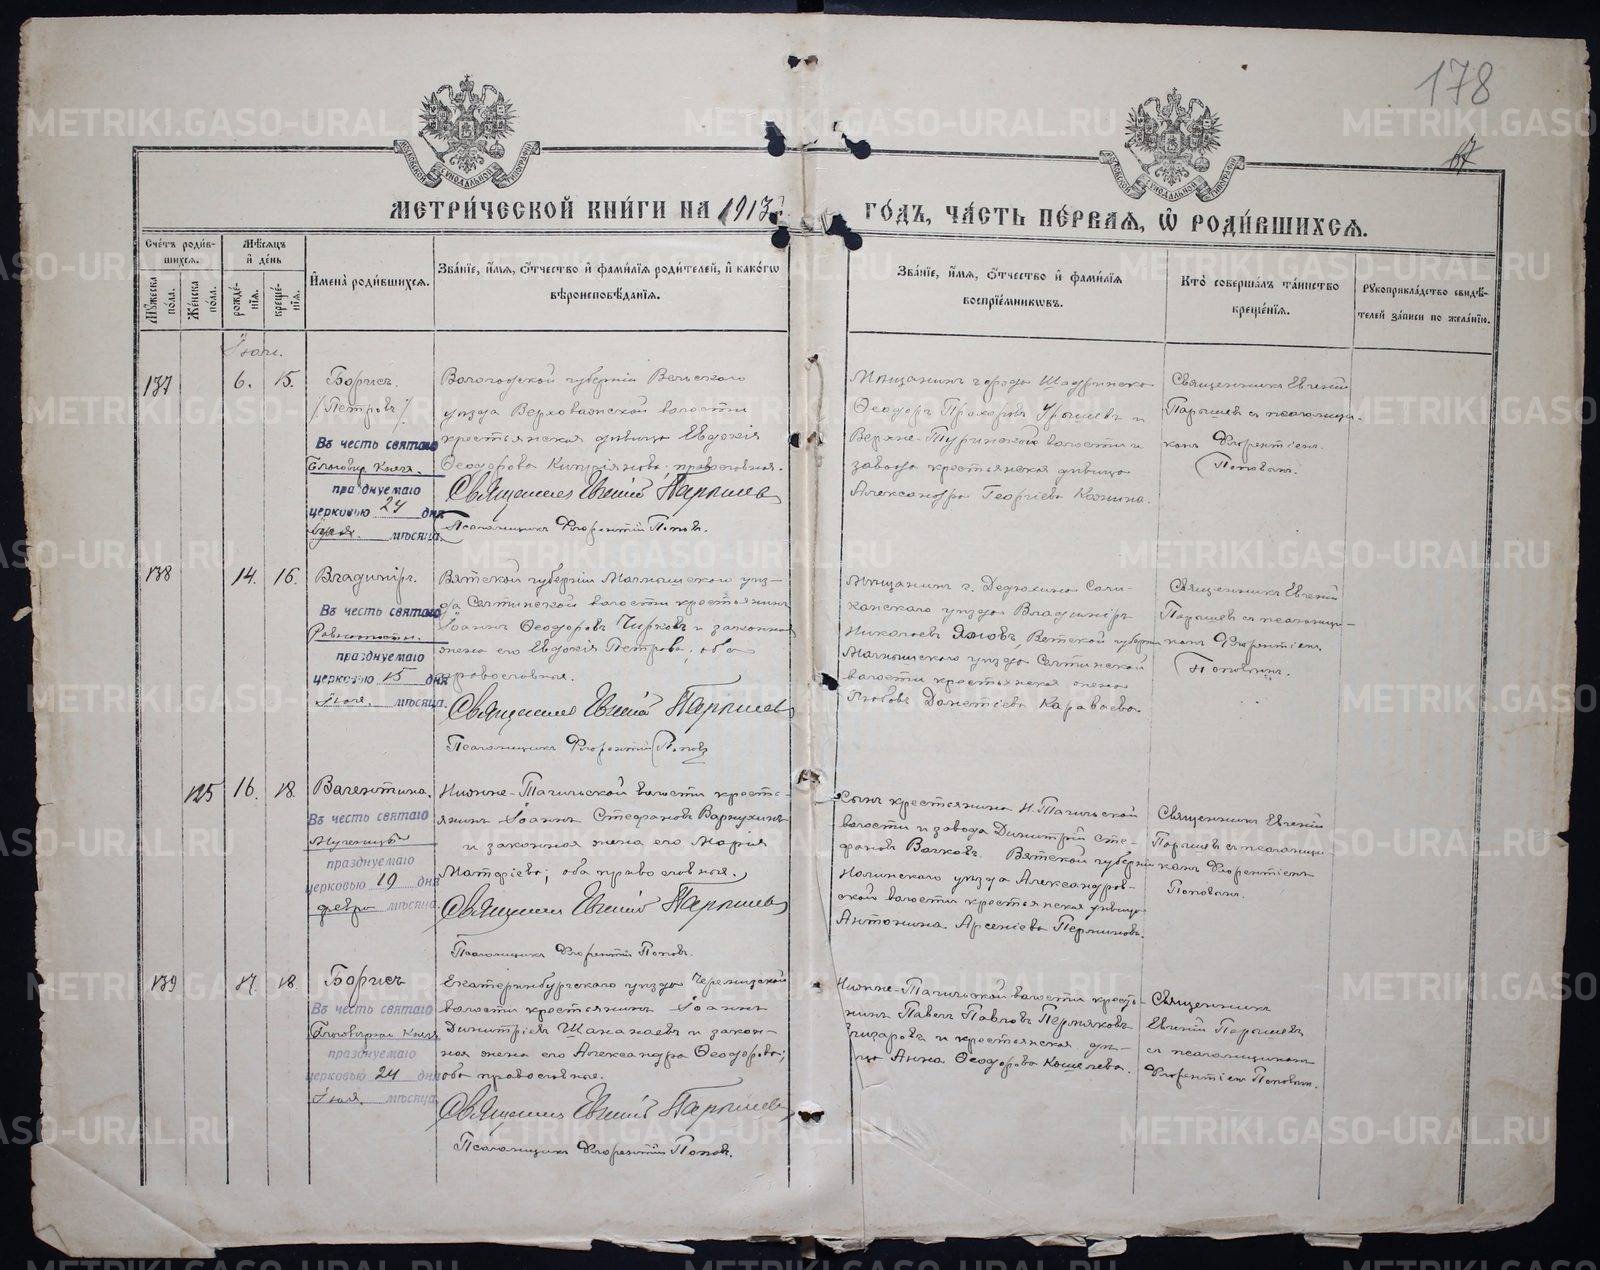 178
67
МОСКОВСКОЙ СѴНОДАЛЬНОЙ ТИПОГРАФІИ
МОСКОВСКОЙ СѴНОДАЛЬНОЙ ТИПОГРАФІИ
МЕТРИ́ЧЕСКОЙ КНИ́ГИ НА 1913
ГО́ДЪ, ЧА́СТЬ ПЕ́РВАЯ, Ѡ РОДИ́ВШИХСЯ.
Сче́тъ роди́в-
шихся.
Мѣ́сяцъ
и де́нь
Мꙋ́жеска
по́ла.
Же́нска
по́ла.
рожде́-
нїя.
креще́-
нїя.
Имена̀ роди́вшихся.
Зва́нїе, и́мя, ѻ́тчество и фами́лїя роди́телей, и како́гѡ
вѣроисповѣ́данїя.
Зва́нїе, и́мя, ѻ́тчество и фами́лїя
воспрїе́мникѡвъ.
Кто̀ соверша́лъ та́инство
креще́нїя.
Рꙋкоприкла́дство свидѣ́-
телей за́писи по жела́нїю.
Іюль.
137
6.
15.
Борисъ.
/Петровъ/.
Въ честь святаго
Благовѣр. Князя.
празднуемаго
церковью 24 дня
Іюля. мѣсяца.
Вологодской губерніи Вельскаго
уѣзда Верховажской волости
крестьянская дѣвица Евдокія
Ѳеодорова православная.
Священникъ Евгеній Парышевъ
Псаломщикъ Флорентій Поповъ.
Мѣщанинъ города Шадринска
Ѳеодоръ Прохоровъ и
Верхне-Туринской волости и
завода крестьянская дѣвица
Александра Георгіева Кожина.
Священникъ Евгеній
Парышевъ съ псаломщи-
комъ Флорентіемъ
Поповымъ.
138
14.
16.
Владиміръ.
Въ честь святаго
Равноапостн.
празднуемаго
церковью 15 дня
Іюля. мѣсяца.
Вятской губерніи Малмыжскаго уѣз-
да Селтинской волости крестьянинъ
Іоаннъ Ѳеодоровъ Чирковъ и законная
жена его Евдокія Петрова; оба
православные.
Священникъ Евгеній Парышевъ
Псаломщикъ Флорентій Поповъ
Мѣщанинъ г. Дедюхина Соли-
камскаго уѣзда Владиміръ
Николаевъ Яновъ, Вятской губерніи
Малмыжскаго уѣзда Селтинской
волости крестьянская жена
Любовь Караваева.
Священникъ Евгеній
Парышевъ съ псаломщи-
комъ Флорентіемъ
Поповымъ.
125
16.
18.
Валентина.
Въ честь святаго
Мученицы
празднуемаго
церковью 10 дня
февра мѣсяца.
Нижне-Тагильской волости кресть-
янинъ Іоаннъ Стефановъ
и законная жена его Марія
Матфіева; оба православные.
Священникъ Евгеній Парышевъ
Псаломщикъ Флорентій Поповъ.
Сынъ крестьянина Н.Тагильской
волости и завода Димитрій Сте-
фановъ Волковъ. Вятской губерніи
Нолинскаго уѣзда Александров-
ской волости крестьянская дѣвица
Антонина Арсеніева Перминова.
Священникъ Евгеній
Парышевъ съ псаломщи-
комъ Флорентіемъ
Поповымъ.
139
17.
18.
Борисъ
Въ честь святаго
Благовѣрнаго Князя
празднуемаго
церковью 24 дня
Іюля. мѣсяца.
Екатеринбургскаго уѣзда
волости крестьянинъ Іоаннъ
Димитріевъ Шаманаевъ и закон-
ная жена его Александра Ѳеодорова;
оба православные.
Священникъ Евгеній Парышевъ
Псаломщикъ Флорентій Поповъ.
Нижне-Тагильской волости кресть-
нинъ Павелъ Павловъ Пермяковъ
и крестьянская дѣ-
вица Анна Ѳеодорова Кошелева.
Священникъ
Евгеній Парышевъ
съ псаломщикомъ
Флорентіемъ Поповымъ.
METRIKI.GASO-URAL.RU